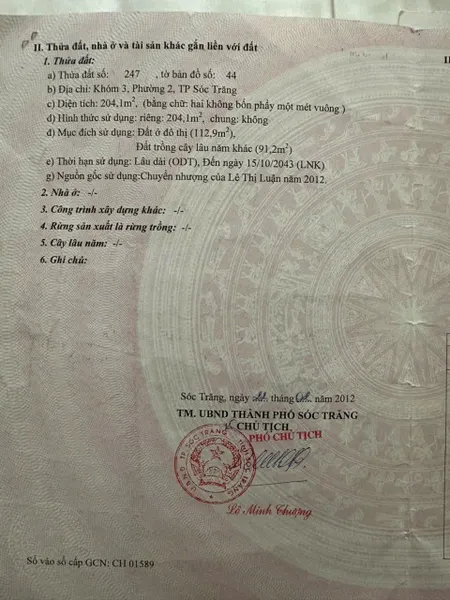 II. Thửa đất, nhà ở và tài sản khác gắn liền với đất
1. Thửa đất:
a) Thửa đất số: 247 , tờ bản đồ số: 44
b) Địa chỉ: Khóm 3, Phường 2, TP Sóc Trăng
c) Diện tích: 204,1m², (bằng chữ: hai không bốn phẩy một mét vuông )
d) Hình thức sử dụng: riêng: 204,1m², chung: không
đ) Mục đích sử dụng: Đất ở đô thị (112,9m²),
Đất trồng cây lâu năm khác (91,2m²)
e) Thời hạn sử dụng: Lâu dài (ODT), Đến ngày 15/10/2043 (LNK)
g) Nguồn gốc sử dụng:Chuyển nhượng của Lê Thị Luận năm 2012.
2. Nhà ở: -/-
3. Công trình xây dựng khác: -/-
4. Rừng sản xuất là rừng trồng: -/-
5. Cây lâu năm: -/-
6. Ghi chú:
Sóc Trăng, ngày tháng năm 2012
TM. UBND THÀNH PHỐ SÓC TRĂNG
CHỦ TỊCH
PHÓ CHỦ TỊCH
U.B.N.D TP SÓC TRĂNG TỈNH SÓC TRĂNG
Lê Minh Thượng
Số vào sổ cấp GCN: CH 01589